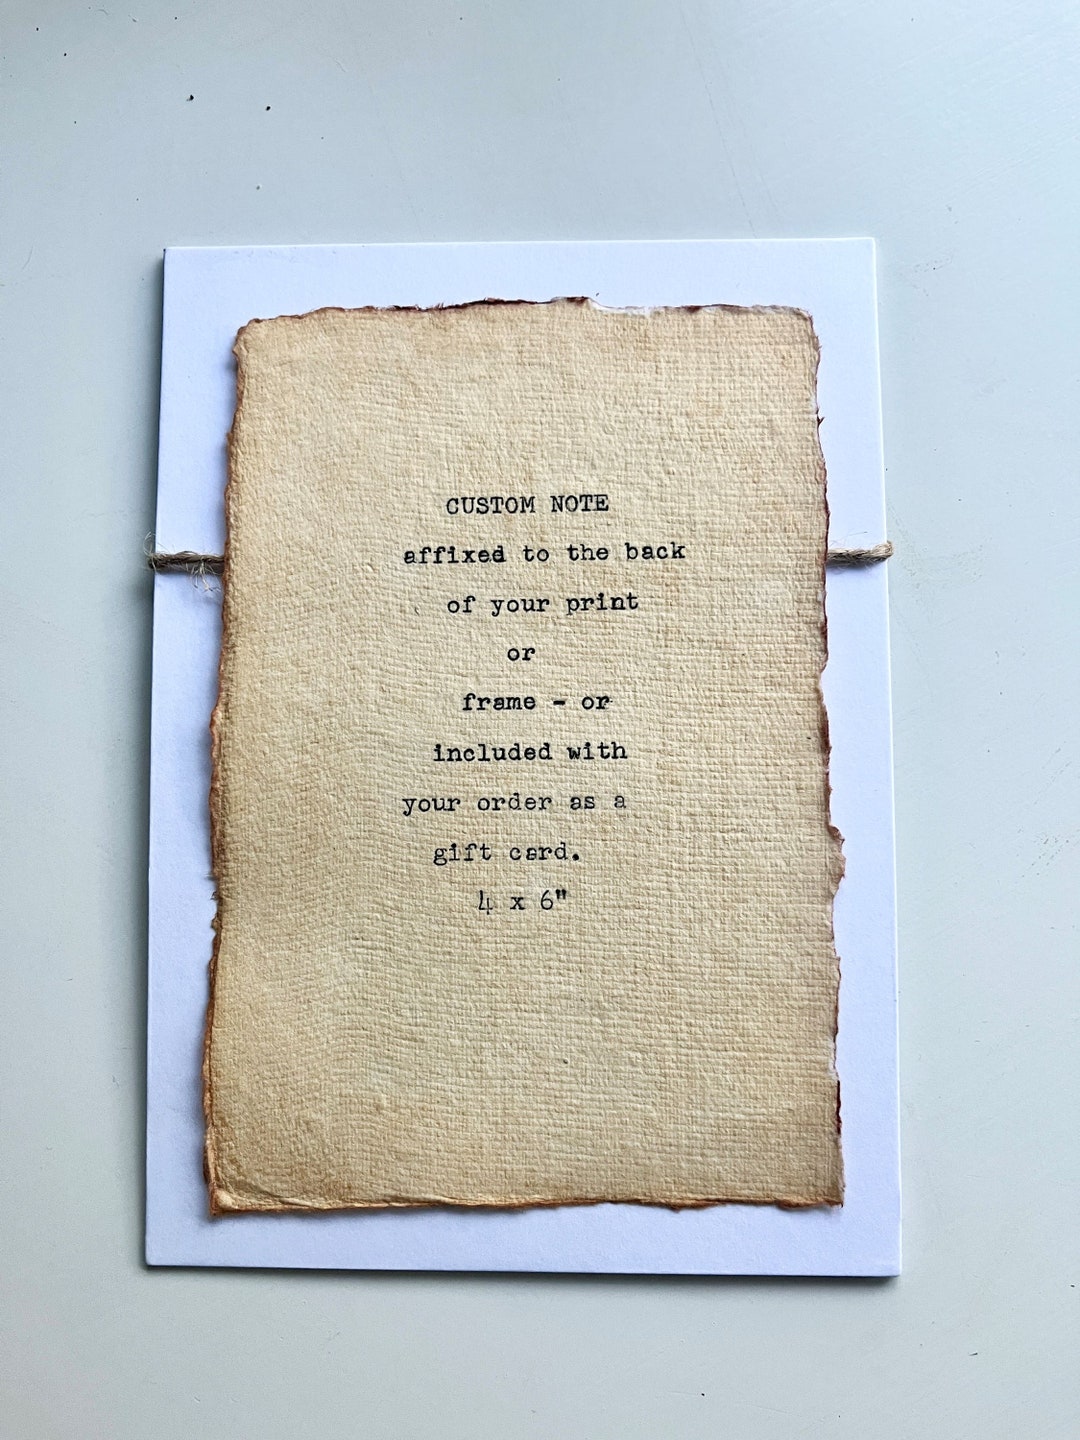 CUSTOM NOTE
affixed to the back
of your print
or
frame - or
included with
your order as a
gift card.
4 x 6"